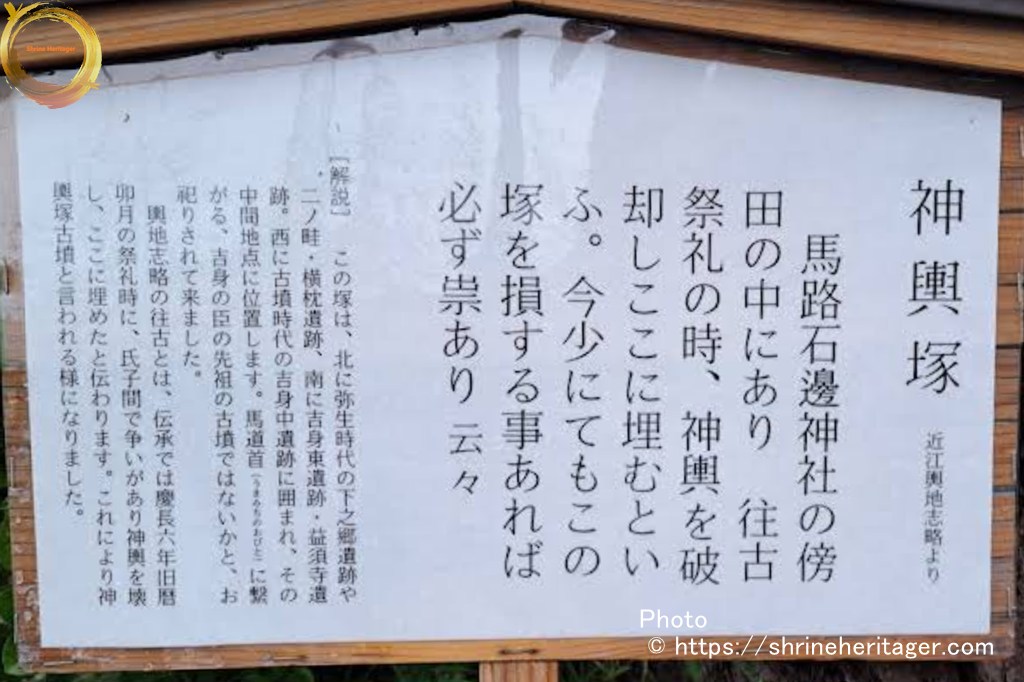 神輿塚
近江輿地志略より
馬路石邊神社の傍
田の中にあり 往古
祭礼の時、神輿を破
却しここに埋むとい
ふ。今少にてもこの
塚を損する事あれば
必ず祟あり 云々
[解説] この塚は、北に弥生時代の下之郷遺跡や
二ノ畦・横枕遺跡、南に吉身東遺跡・益須寺遺
跡。西に古墳時代の吉身中遺跡に囲まれ、その
中間地点に位置します。馬道首(うまみちのおびと)に繋
がる、吉身の臣の先祖の古墳ではないかと、お
祀りされて来ました。
輿地志略の往古とは、伝承では慶長六年旧暦
卯月の祭礼時に、氏子間で争いがあり神輿を壊
し、ここに埋めたと伝わります。これにより神
輿塚古墳と言われる様になりました。
Shrine Heritager
Photo
© https://shrineheritager.com